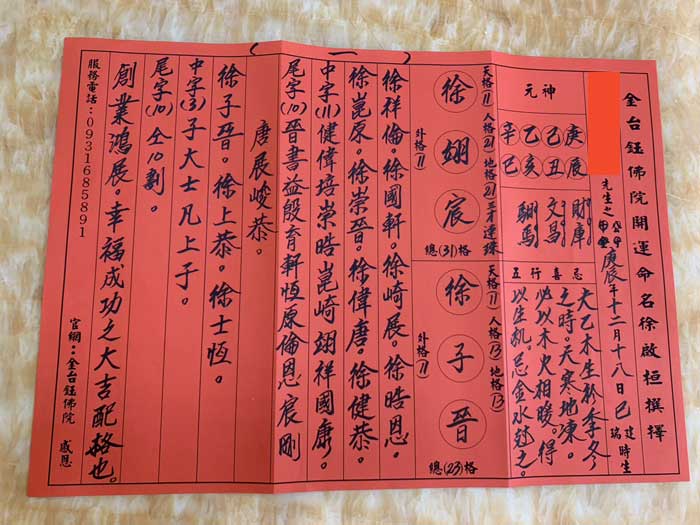 金台鈺佛院開運命名徐啟桓撰擇
庚辰年十二月十八日巳時生
元神
辛乙己庚
巳亥丑辰
財庫
文昌
馬
五行喜忌
夫乙木生於季冬
之時。天寒地凍。
必以木火相暖。得
以生机。忌金水尅之。
天格11 人格21 地格21 三才連珠
徐翊宸
外格11
總(31)格
天格11 人格13 地格13
徐子晉
外格11
總(23)格
徐祥倫。徐國軒。徐崎展。徐晧恩。
徐崑原。徐崇晉。徐偉唐。徐健恭。
中字(11)健偉培崇晧崑崎翊祥國康。
尾字(10)晉書益殷育軒恆原倫恩宸剛
唐展峻恭。
徐子晉。徐上恭。徐士恆。
中字(3)子大士凡上于。
尾字(10)仝10劃。
創業鴻展。幸福成功之大吉配格也。
服務電話：0931685891
官網：金台鈺佛院 感恩